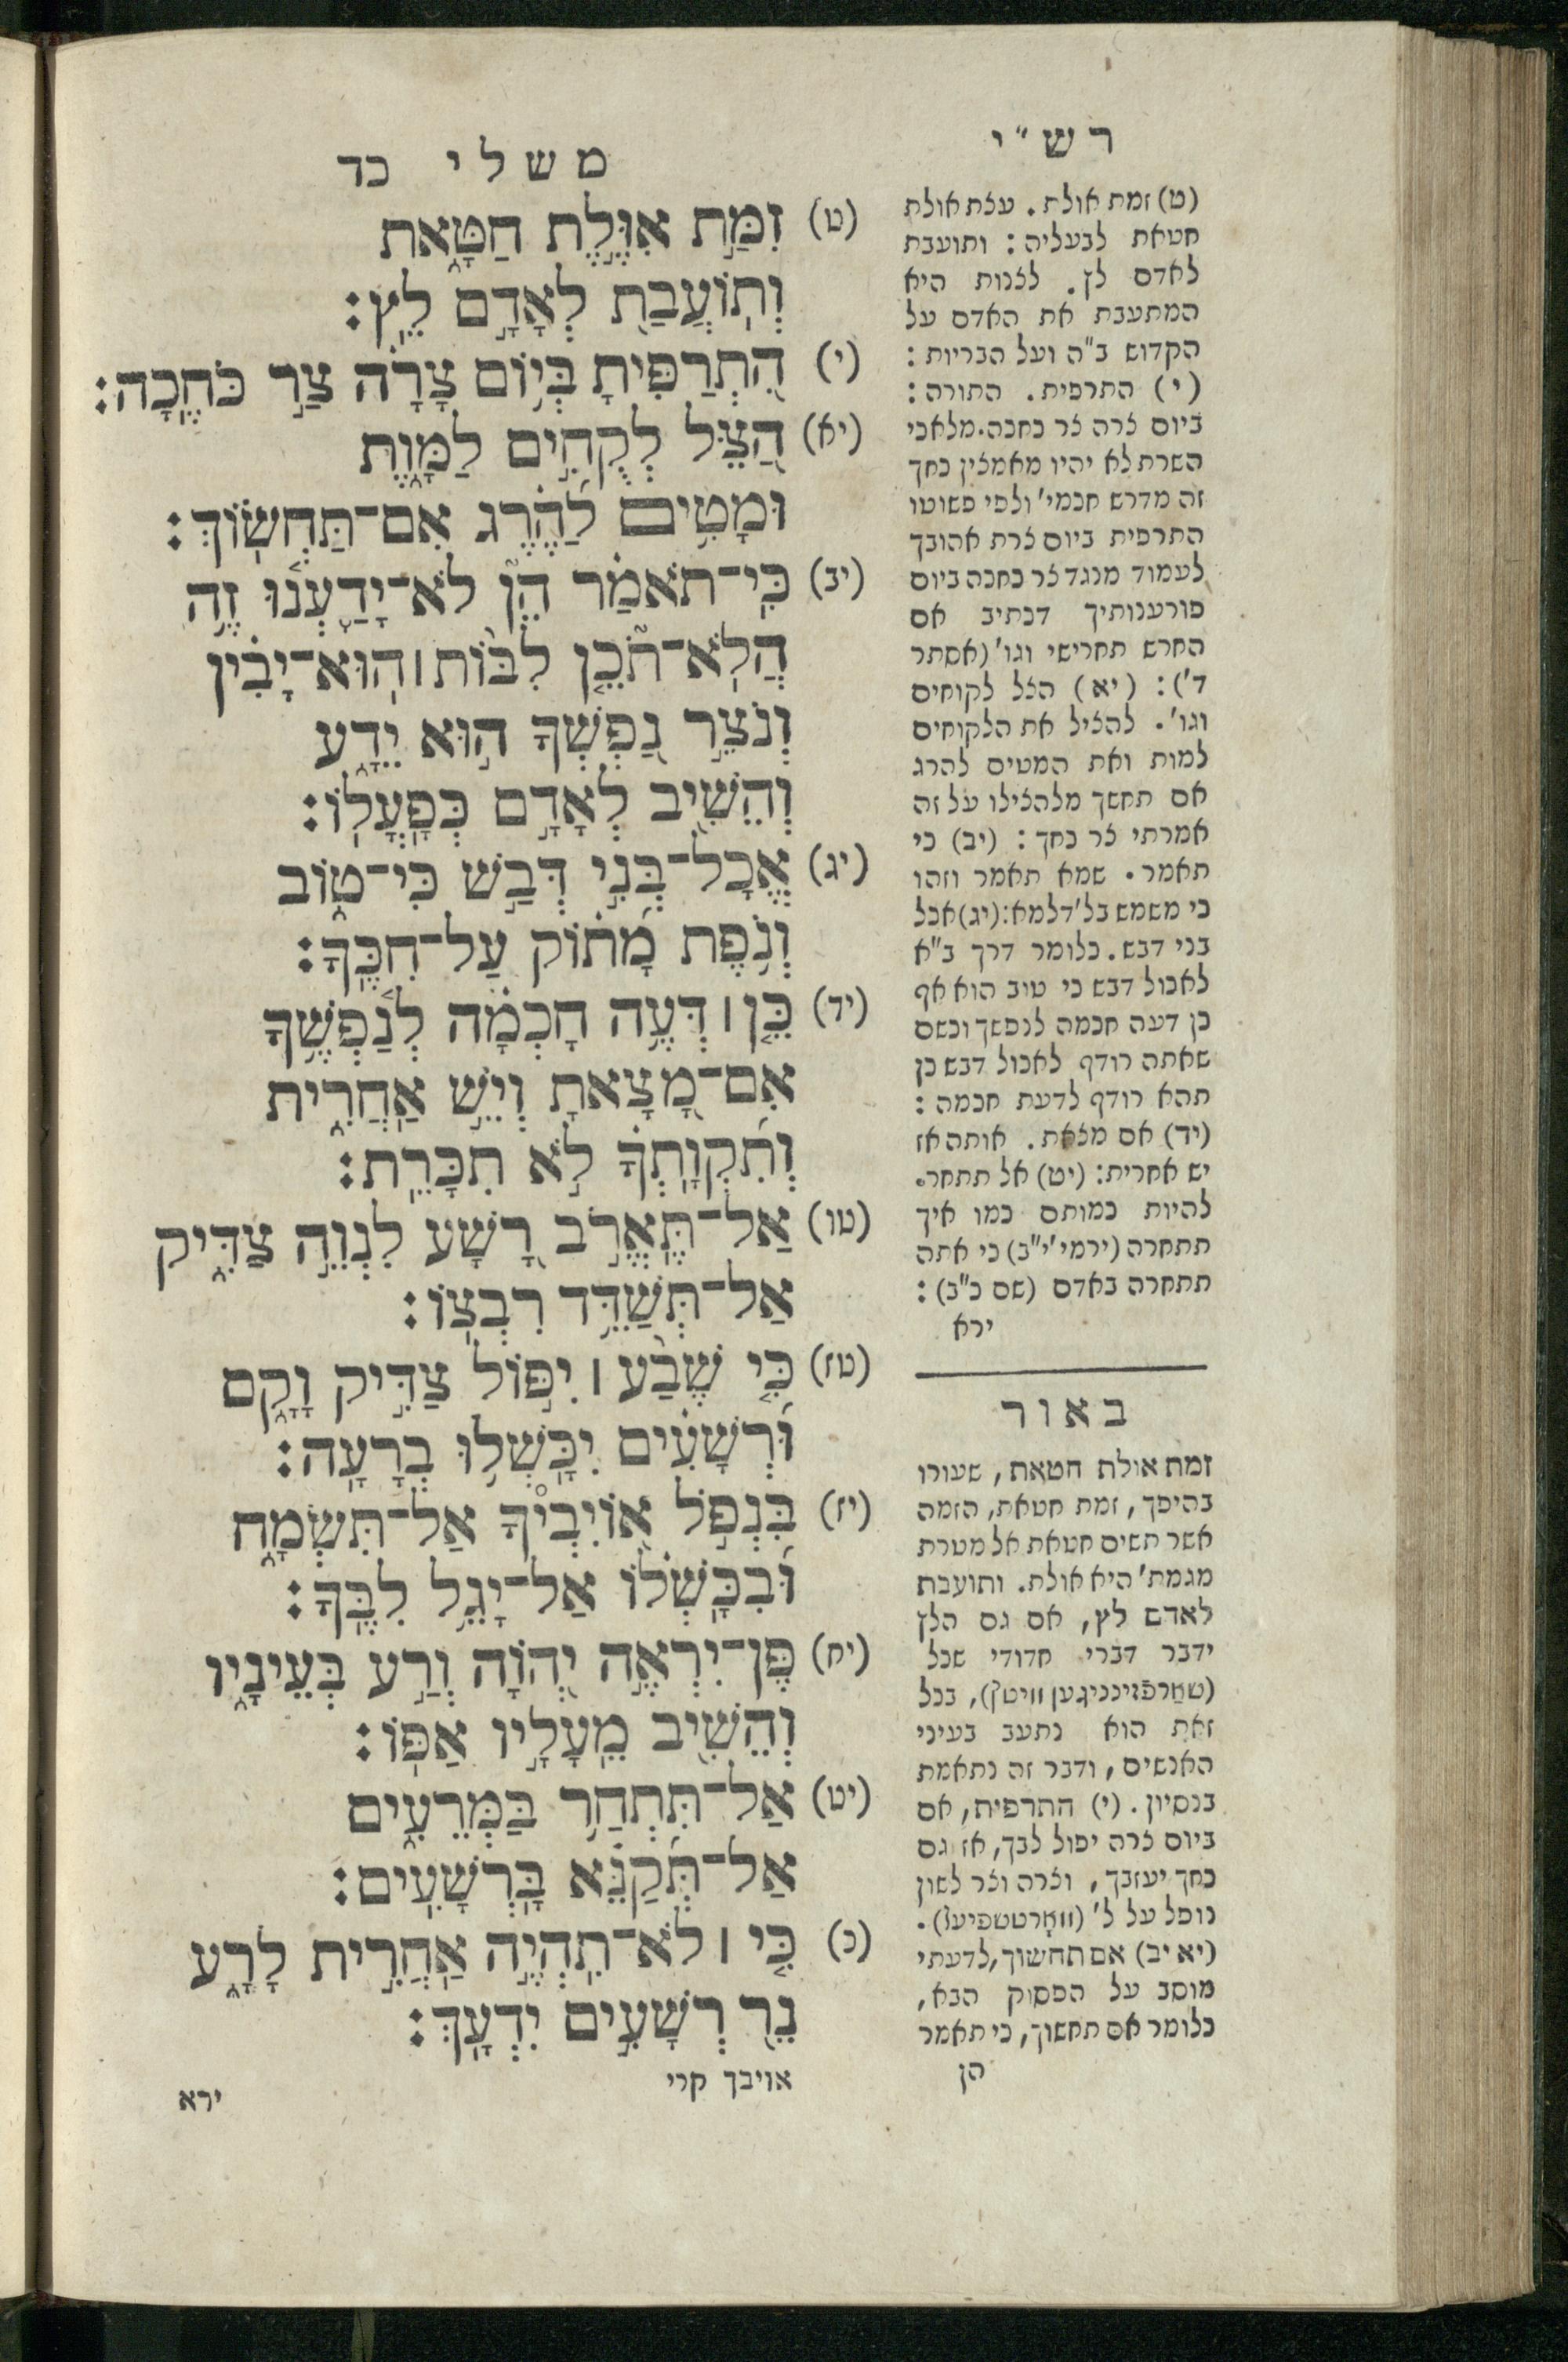 רש״י
(ט) זמת אולת. עצת אולת
חטאת לבעליה: ותועבת
לאדם לץ. לצנות היא
המתעבת את האדם על
הקדוש ב״ה ועל הבריות:
(י) התרפית. התורה:
ביום צרה צר כחכה. מלאכי
השרת לא יהיו מאמצין כחך
זה מדרש חכמי׳ ולפי פשוטו
התרפית ביום צרת אהובך
לעמוד מנגד צר כחכה ביום
פורענותיך דכתיב אם
החרש תחרישי וגו׳ (אסתר
ד׳): (יא) הצל לקוחים
וגו׳. להציל את הלקוחים
למות ואת המטים להרג
אם תחשך מלהצילו על זה
אמרתי צר כחך: (יב) כי
תאמר. שמא תאמר וזהו
כי משמש בל׳ דלמא: (יג) אכל
בני דבש. כלומר דרך ב״א
לאכול דבש כי טוב הוא אף
כן דעה חכמה לנפשך וכשם
שאתה רודף לאכול דבש כן
תהא רודף לדעת חכמה:
(יד) אם מצאת. אותה אז
יש אחרית: (יט) אל תתחר.
להיות כמותם כמו איך
תתחרה (ירמי׳ י״ב) כי אתה
תתחרה באדם (שם כ״ב):
ירא
באור
זמת אולת חטאת, שעורו
בהיפך, זמת חטאת, הזמה
אשר תשים חטאת אל מטרת
מגמת׳ היא אולת. ותועבת
לאדם לץ, אם גם הלץ
ידבר דברי חדודי שכל
(טמרפזיננינען וויטץ), בכל
זאת הוא נתעב בעיני
האנשים, ודבר זה נתאמת
בנסיון. (י) התרפית, אם
ביום צרה יפול לבך, אז גם
כחך יעזבך, וצרה וצר לשון
נופל על ל׳ (ווארטשפיעל).
(יא יב) אם תחשוך, לדעתי
מוסב על הפסוק הבא,
כלומר אם תחשוך, כי תאמר
הן
משלי כד
(ט) זִמַּ֣ת אִוֶּ֣לֶת חַטָּ֑את
וְתוֹעֲבַ֖ת לְאָדָ֣ם לֵֽץ:
(י) הִ֭תְרַפִּיתָ בְּי֥וֹם צָרָ֗ה צַ֣ר כֹּחֶֽכָה:
(יא) הַ֭צֵּל לְקֻחִ֣ים לַמָּ֑וֶת
וּמָטִ֥ים לַ֝הֶ֗רֶג אִם־תַּחְשֽׂוֹךְ:
(יב) כִּֽי־תֹאמַ֗ר הֵן֮ לֹא־יָדַ֪עְנ֫וּ זֶ֥ה
הֲֽלֹא־תֹ֘כֵ֤ן לִבּ֨וֹת ׀ הֽוּא־יָבִ֗ין
וְנֹצֵ֣ר נַ֭פְשְׁךָ ה֣וּא יֵדָ֑ע
וְהֵשִׁ֖יב לְאָדָ֣ם כְּפָעֳלֽוֹ:
(יג) אֱכָל־בְּנִ֣י דְבַ֣שׁ כִּי־ט֑וֹב
וְנֹ֥פֶת מָ֝ת֗וֹק עַל־חִכֶּֽךָ:
(יד) כֵּ֤ן ׀ דְּעֶ֥ה חָכְמָ֗ה לְנַ֫פְשֶׁ֥ךָ
אִם־מָ֭צָאתָ וְיֵ֣שׁ אַחֲרִ֑ית
וְ֝תִקְוָתְךָ֗ לֹ֣א תִכָּרֵֽת:
(טו) אַל־תֶּאֱרֹ֣ב רָ֭שָׁע לִנְוֵ֣ה צַדִּ֑יק
אַל־תְּשַׁדֵּ֥ד רִבְצֽוֹ:
(טז) כִּ֤י שֶׁ֨בַע ׀ יִפּ֣וֹל צַדִּ֣יק וָקָ֑ם
וּ֝רְשָׁעִ֗ים יִכָּשְׁל֥וּ בְרָעָֽה:
(יז) בִּנְפֹ֣ל א֭וֹיִבְיךָ אַל־תִּשְׂמָ֑ח
וּ֝בִכָּשְׁל֗וֹ אַל־יָגֵ֥ל לִבֶּֽךָ:
(יח) פֶּן־יִרְאֶ֣ה יְ֭הוָה וְרַ֣ע בְּעֵינָ֑יו
וְהֵשִׁ֖יב מֵעָלָ֣יו אַפּֽוֹ:
(יט) אַל־תִּתְחַ֥ר בַּמְּרֵעִ֑ים
אַל־תְּ֝קַנֵּ֗א בָּרְשָׁעִֽים:
(כ) כִּ֤י ׀ לֹא־תִהְיֶ֣ה אַחֲרִ֣ית לָרָ֑ע
נֵ֖ר רְשָׁעִ֣ים יִדְעָֽךְ:
אויבך קרי
ירא